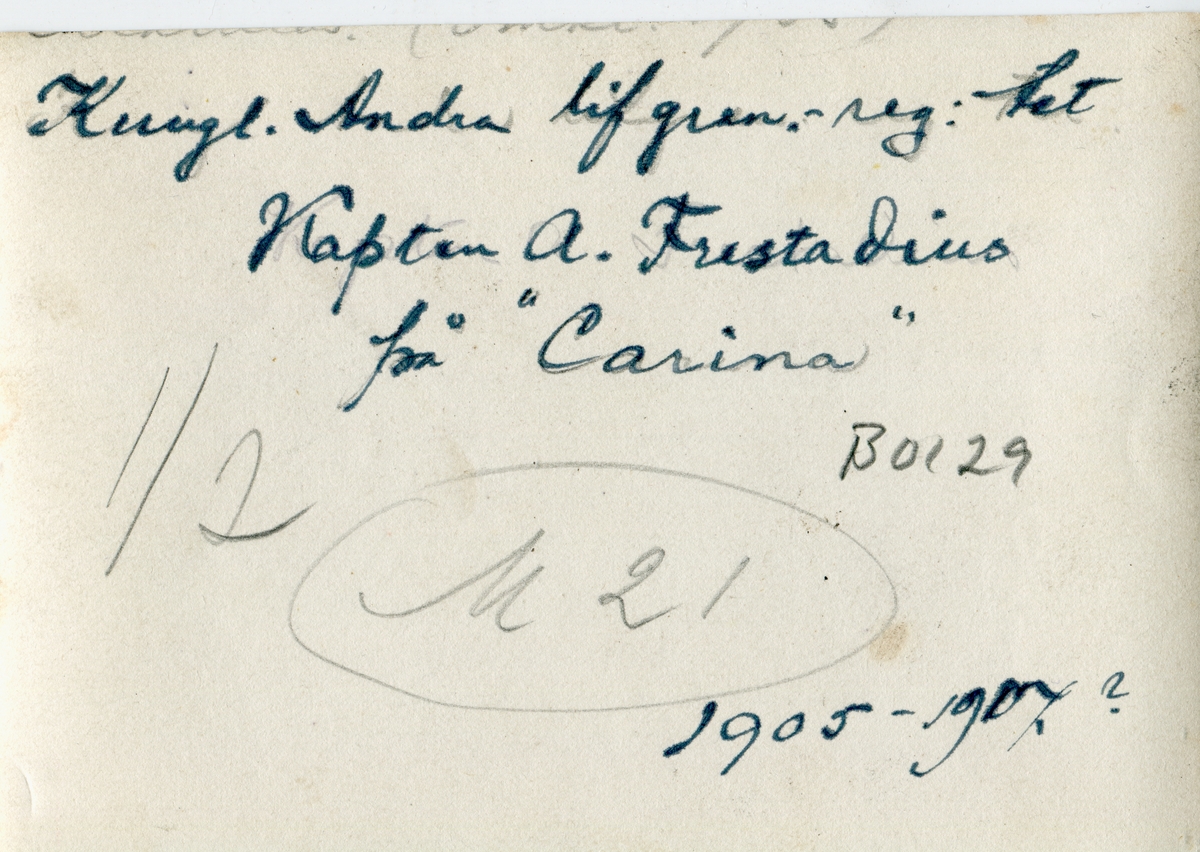 Kungl. Andra lifgren.-reg:tet
Kapten A. Frestadius
på "Carina"
B0129
1/2
M 21
1905-1907?